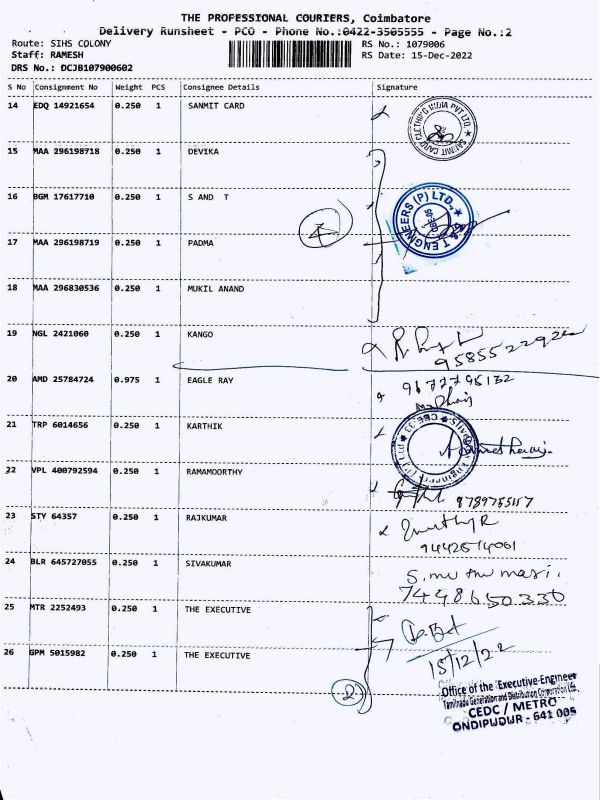 THE PROFESSIONAL COURIERS, Coimbatore
Delivery Runsheet - PCO - Phone No.:0422-3505555 - Page No.:2
Route: SIHS COLONY
Staff: RAMESH
DRS No.: DCJB107900602
RS No.: 1079006
RS Date: 15-Dec-2022
S No Consignment No Weight PCS Consignee Details Signature
14 EDQ 14921654 0.250 1 SANMIT CARD
15 MAA 296198718 0.250 1 DEVIKA
16 BGM 17617710 0.250 1 S AND T
17 MAA 296198719 0.250 1 PADMA
18 MAA 296830536 0.250 1 MUKIL ANAND
19 NGL 2421060 0.250 1 KANGO
20 AMD 25784724 0.975 1 EAGLE RAY
9677795132
21 TRP 6014656 0.250 1 KARTHIK
22 VPL 400792594 0.250 1 RAMAMOORTHY
8789755157
23 STY 64357 0.250 1 RAJKUMAR
9442514061
24 BLR 645727055 0.250 1 SIVAKUMAR
7448650330
25 MTR 2252493 0.250 1 THE EXECUTIVE
26 GPM 5015982 0.250 1 THE EXECUTIVE
15/12/22
2
Office of the Executive-Engineer
Tamilnadu Generation and Distribution Corporation Ltd.
CEDC / METRO
ONDIPUDUR - 641 005